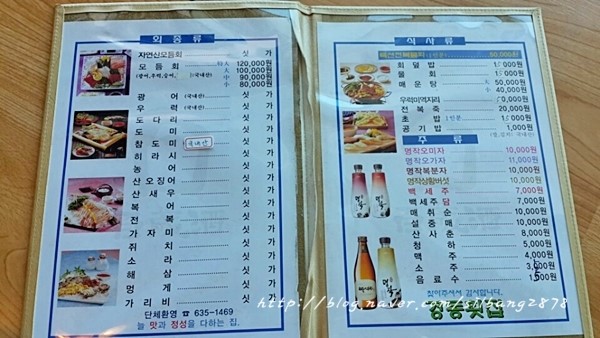 회 종 류
자연산모듬회 싯 가
모 듬 회 특 120,000원
(광어,우럭,숭어, (국내산) 대 100,000원
중 90,000원
소 80,000원
광 어 (국내산) 싯 가
우 럭 (국내산) 싯 가
도 다 리 싯 가
도 미 싯 가
참 도 미 국내산 싯 가
히 라 시 싯 가
농 어 싯 가
산 오 징 어 싯 가
산 새 우 싯 가
복 어 싯 가
전 복 싯 가
가 자 미 싯 가
쥐 치 싯 가
소 라 싯 가
해 삼 싯 가
멍 게 싯 가
가 리 비 싯 가
단체환영 ☎ 635-1469
늘 맛과 정성을 다하는 집.
식 사 류
50,000원
회 덮 밥
물 회
매 운 탕 대 50,000원
소 40,000원
우럭미역지리
전 복 죽
초 밥 (1인분)
공 기 밥 1,000원
주 류
명작오미자 10,000원
명작오가자 11,000원
명작복분자 10,000원
명작상황버섯 10,000원
백 세 주 7,000원
백 세 주 담 7,000원
매 취 순 10,000원
설 중 매 10,000원
산 사 춘 8,000원
청 하 5,000원
맥 주 4,000원
소 주
음 료 수
찾아주셔서 감사합니다.
http://blog.naver.com/sibang2878